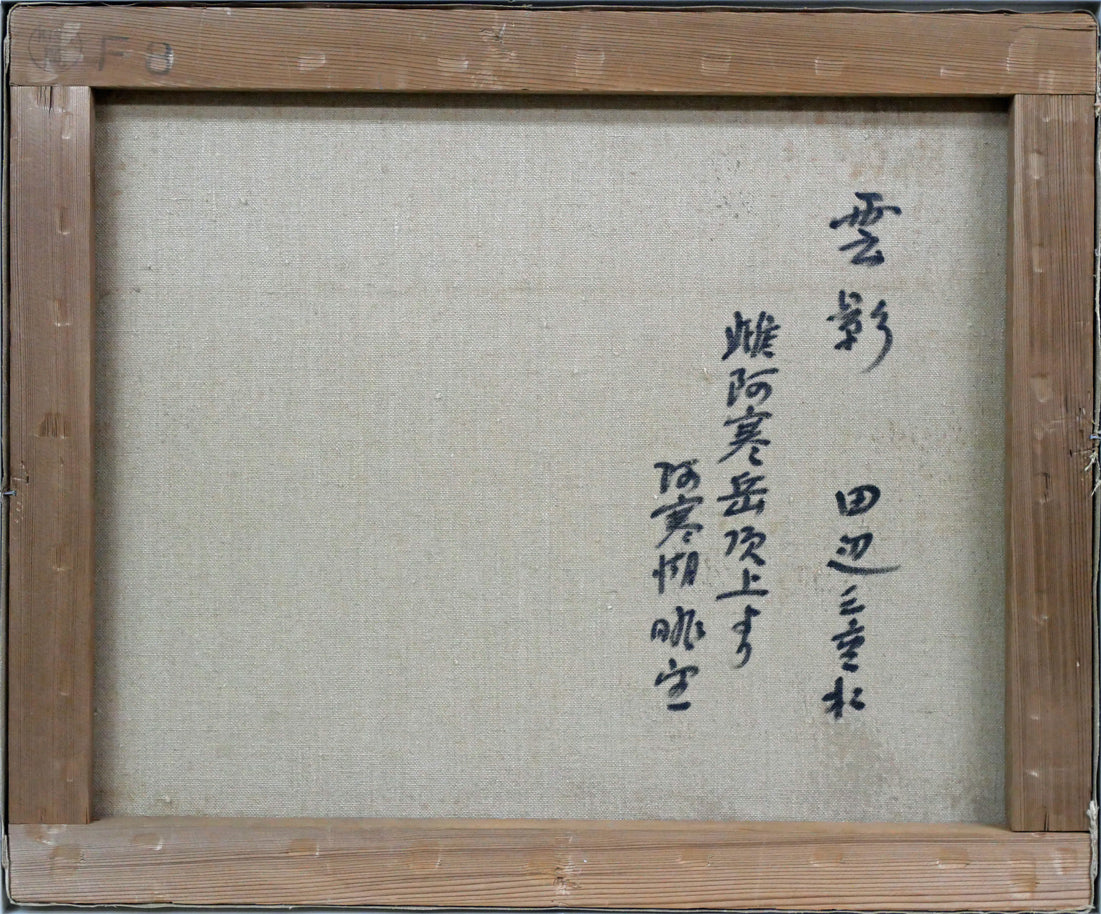 F8
雲影 田辺三重松
雌阿寒岳頂上より
阿寒湖眺望